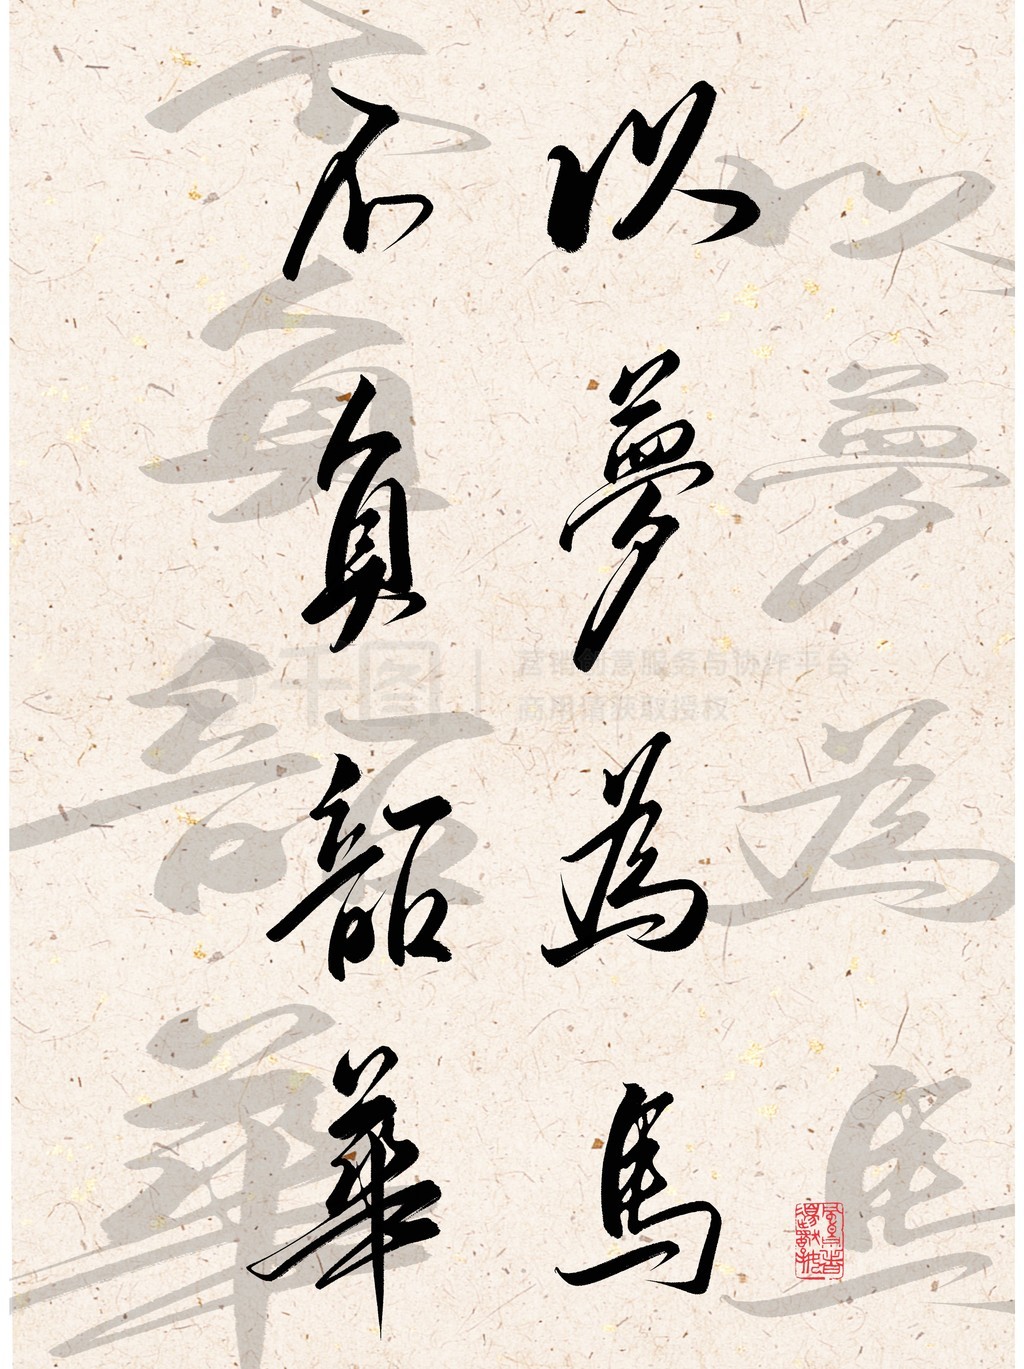 以夢為馬
不負韶華
千图
营销创意服务与协作平台
商用请获取授权